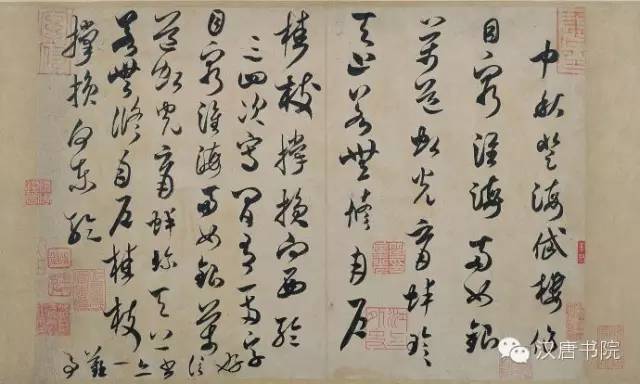 中秋登海岱樓作
目窮淮海兩如銀
萬道虹光育蚌珍
天上若無修月戶
桂枝撐損向西輪
三四次寫間有一兩字好
信書亦一難事
目窮淮海兩如銀萬
道虹光育蚌珍天上
若無修月戶桂枝
撐損向東輪
汉唐书院